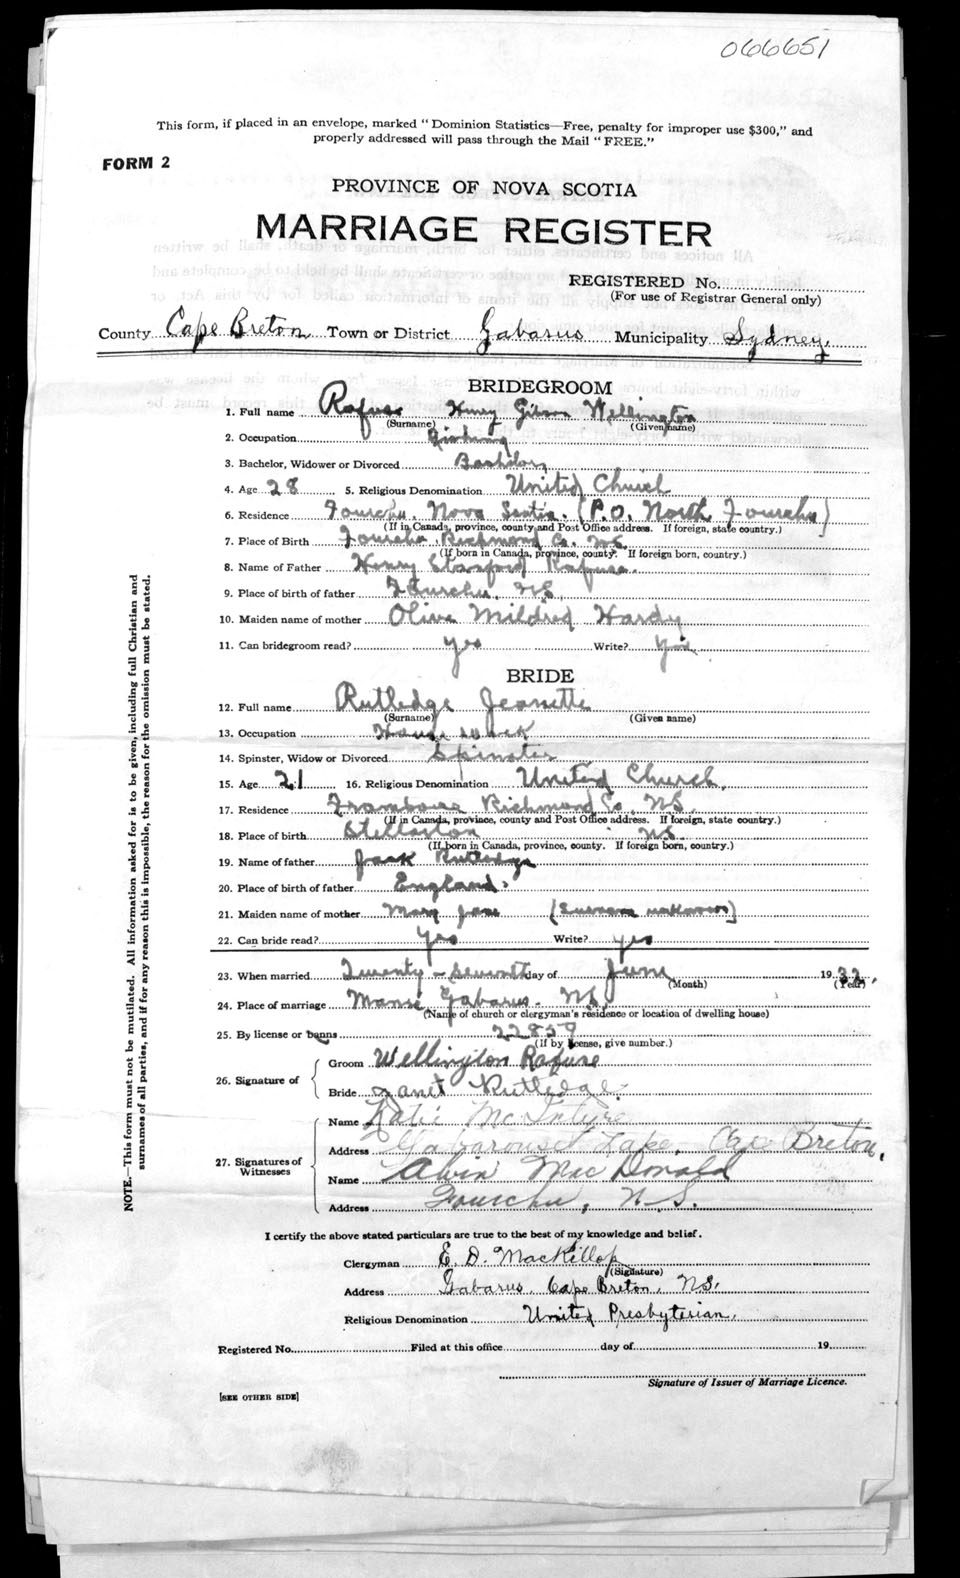 066651
This form, if placed in an envelope, marked "Dominion Statistics—Free, penalty for improper use $300," and
properly addressed will pass through the Mail "FREE."
FORM 2
PROVINCE OF NOVA SCOTIA
MARRIAGE REGISTER
REGISTERED No.
(For use of Registrar General only)
County Cape Breton Town or District Gabarus Municipality Sydney.
BRIDEGROOM
1. Full name Rafuse Henry Gibson Wellington
(Surname) (Given name)
2. Occupation Fishing
3. Bachelor, Widower or Divorced Bachelor
4. Age 28 5. Religious Denomination United Church
6. Residence Fourchu, Nova Scotia. (P.O. North Fourchu)
(If in Canada, province, county and Post Office address. If foreign, state country.)
7. Place of Birth Fourchu Richmond Co. N.S.
(If born in Canada, province, county. If foreign born, country.)
8. Name of Father Henry Rafuse
9. Place of birth of father Fourchu, NS,
10. Maiden name of mother Olive Mildred Hardy
11. Can bridegroom read? yes Write? yes
BRIDE
12. Full name Rutledge Jeanette
(Surname) (Given name)
13. Occupation House work
14. Spinster, Widow or Divorced Spinster
15. Age 21 16. Religious Denomination United Church,
17. Residence Framboise Richmond Co, N.S.
(If in Canada, province, county and Post Office address. If foreign, state country.)
18. Place of birth Stellarton NS.
(If born in Canada, province, county. If foreign born, country.)
19. Name of father Jack Rutledge
20. Place of birth of father England.
21. Maiden name of mother Mary Jane (Surname unknown)
22. Can bride read? Yes Write? yes
23. When married Twenty-Seventh day of June 1932,
(Month) (Year)
24. Place of marriage Manse Gabarus. NS
(Name of church or clergyman's residence or location of dwelling house)
25. By license or banns 22859
(If by license, give number.)
26. Signature of
Groom Wellington Rafuse
Bride Janet Rutledge.
27. Signatures of Witnesses
Name Katie McIntyre
Address Gabarouse Lake, Cape Breton,
Name Alvin MacDonald
Address Fourchu, N.S.
I certify the above stated particulars are true to the best of my knowledge and belief.
Clergyman E. D. MacKillop
(Signature)
Address Gabarus, Cape Breton, NS.
Religious Denomination United Presbyterian.
Registered No. Filed at this office day of 19
Signature of Issuer of Marriage Licence.
[SEE OTHER SIDE]
NOTE.—This form must not be mutilated. All information asked for is to be given, including full Christian and
surnames of all parties, and if for any reason this is impossible, the reason for the omission must be stated.